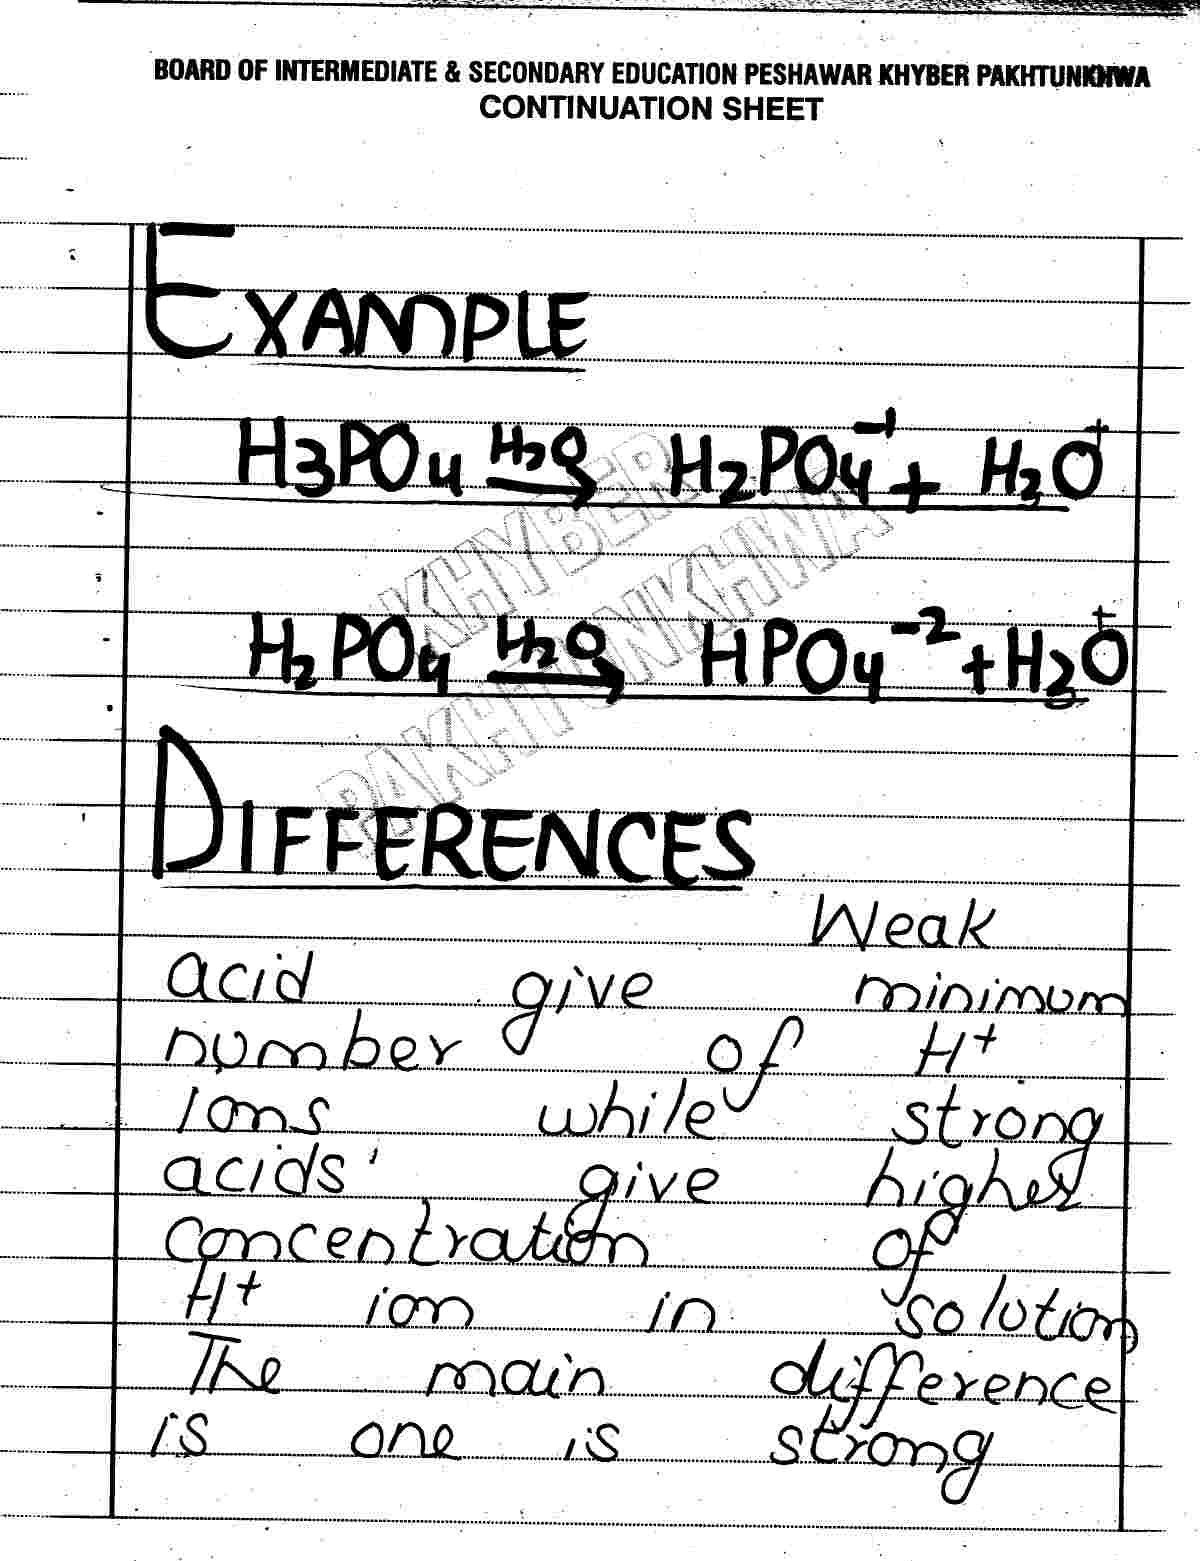 BOARD OF INTERMEDIATE & SECONDARY EDUCATION PESHAWAR KHYBER PAKHTUNKHWA
CONTINUATION SHEET
EXAMPLE
H3PO4 H₂O→ H₂PO₄⁻¹ + H₂O⁺
KHYBER
PAKHTUNKHWA
H₂PO₄ H₂O→ HPO₄⁻² + H₂O⁺
DIFFERENCES
Weak
acid give minimum
number of H⁺
Ions while strong
acids' give higher
concentration of
H⁺ ion in solution
The main difference
is one is strong